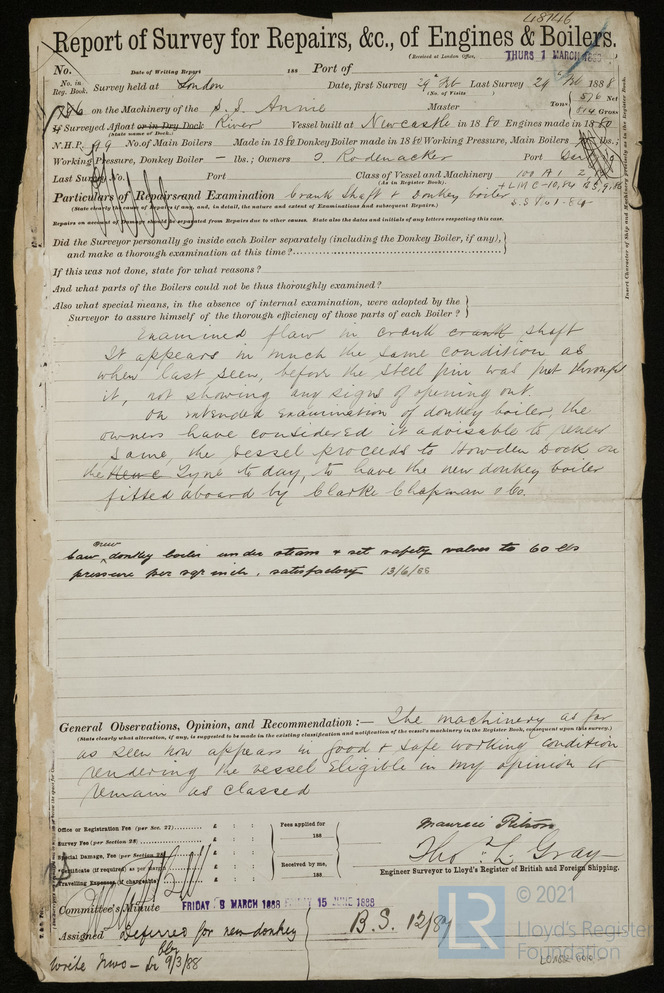 48746
Report of Survey for Repairs, &c., of Engines & Boilers.
(Received at London Office, THURS 1 MARCH
No. Date of Writing Report 188 Port of
No. in Reg. Book. Survey held at London Date, first Survey 29th Feb Last Survey 29th Feb 1888
(No. of Visits )
on the Machinery of the S.S. Annie Master Tons 576 Net
Gross
If Surveyed Afloat or in Dry Dock River Vessel built at Newcastle in 1880 Engines made in 1880
(State name of Dock.)
N.H.P. 99 No. of Main Boilers Made in 1880 Donkey Boiler made in 1880 Working Pressure, Main Boilers lbs.;
Working Pressure, Donkey Boiler — lbs.; Owners Rodenacker Port
Last Survey No. Port Class of Vessel and Machinery 100 A1
(As in Register Book).
Particulars of Repairs and Examination Crank Shaft & Donkey boiler
(State clearly the cause of Repairs if any, and, in detail, the nature and extent of Examinations and subsequent Repairs.)
Repairs on account of Damage should be separated from Repairs due to other causes. State also the dates and initials of any letters respecting this case.
Insert Character of Ship and Machinery precisely as in the Register Book.
Did the Surveyor personally go inside each Boiler separately (including the Donkey Boiler, if any),
and make a thorough examination at this time?
If this was not done, state for what reasons?
And what parts of the Boilers could not be thus thoroughly examined?
Also what special means, in the absence of internal examination, were adopted by the
Surveyor to assure himself of the thorough efficiency of those parts of each Boiler?
Examined flaw in crank crank shaft
It appears in much the same condition as
when last seen, before the steel pin was put through
it, not showing any signs of opening out.
On intended examination of donkey boiler, the
owners have considered it advisable to renew
same, the vessel proceeds to Howden Dock on
the Hence Tyne to day, to have the new donkey boiler
fitted aboard by Clarke Chapman & Co.
Saw new donkey boiler under steam & set safety valves to 60 lbs
pressure per sqr inch, satisfactory 13/6/88
General Observations, Opinion, and Recommendation :— The machinery as far
(State clearly what alteration, if any, is suggested to be made in the existing classification and notification of the vessel's machinery in the Register Book, consequent upon this survey.)
as seen now appears in good & safe working condition
rendering the vessel Eligible in my opinion to
remain as classed
Office or Registration Fee (per Sec. 27) £ : :
Survey Fee (per Section 28) £ : :
Special Damage, Fee (per Section 28) £ : :
Certificate (if required) as per margin £ : :
Travelling Expenses (if chargeable) £ : :
Fees applied for
188
Received by me,
188
Maurice Pitson
Tho. L. Gray
Engineer Surveyor to Lloyd's Register of British and Foreign Shipping.
Committee's Minute FRIDAY 9 MARCH 1888 FRIDAY 15 JUNE 1888
Assigned Deferred for new donkey blr
B.S. 12/87
Write Nwc 9/3/88
© 2021
LR
Lloyd's Register
Foundation